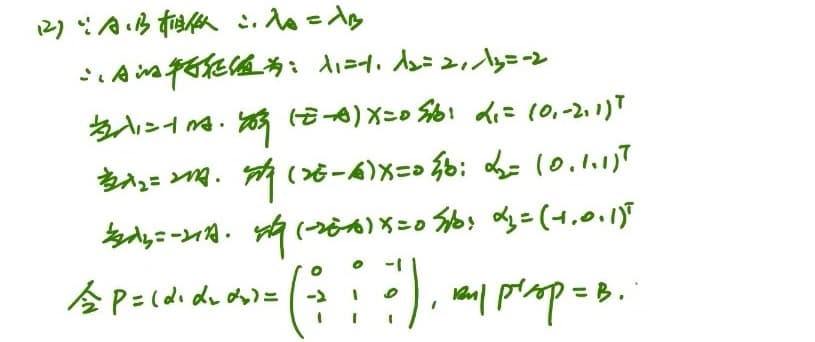 (2) ∵ A、B相似 ∴ λA = λB
∴ A的特征值为: λ₁=-1, λ₂=2, λ₃=-2
当λ₁=-1时. 解 (-E-A)X=0 得: α₁= (0,-2,1)ᵀ
当λ₂=2时. 解 (2E-A)X=0 得: α₂= (0,1,1)ᵀ
当λ₃=-2时. 解 (-2E-A)X=0 得: α₃=(-1,0,1)ᵀ
令 P=(α₁ α₂ α₃)= ( 0 0 -1
-2 1 0
1 1 1 ), 则 P⁻¹AP = B.